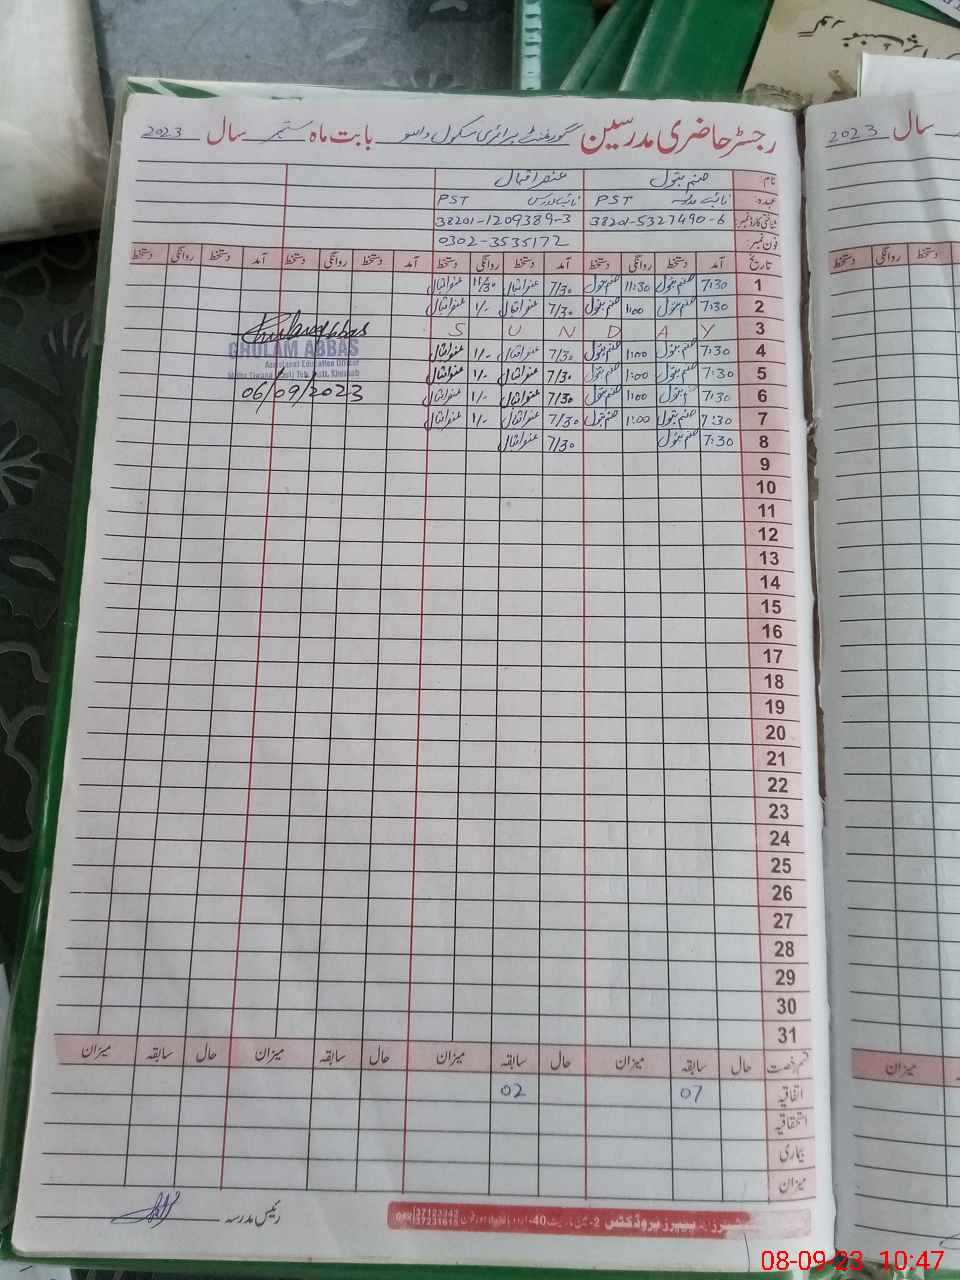 رجسٹر حاضری مدرسین گورنمنٹ پرائمری سکول داسو بابت ماہ ستمبر سال 2023
نام: صنم بتول عنصر اقبال
عہدہ: PST نائب مدرس PST
شناختی کارڈ نمبر: 38201-5327490-6 38201-1209389-3
فون نمبر: 0302-3535172
تاریخ آمد دستخط روانگی دستخط آمد دستخط روانگی دستخط آمد دستخط روانگی دستخط آمد دستخط روانگی دستخط
1 7:30 صنم بتول 11:30 صنم بتول 7/30 عنصر اقبال 11/30 عنصر اقبال
2 7:30 صنم بتول 1:00 صنم بتول 7/30 عنصر اقبال 1/- عنصر اقبال
3 S U N D A Y
4 7:30 صنم بتول 1:00 صنم بتول 7/30 عنصر اقبال 1/- عنصر اقبال
5 7:30 صنم بتول 1:00 صنم بتول 7/30 عنصر اقبال 1/- عنصر اقبال
6 7:30 صنم بتول 1:00 صنم بتول 7/30 عنصر اقبال 1/- عنصر اقبال
7 7:30 صنم بتول 1:00 صنم بتول 7/30 عنصر اقبال 1/- عنصر اقبال
8 7:30 صنم بتول 7/30 عنصر اقبال
GHULAM ABBAS
Assistant Education Officer
06/09/2023
9
10
11
12
13
14
15
16
17
18
19
20
21
22
23
24
25
26
27
28
29
30
31
قسم رخصت حال سابقہ میزان حال سابقہ میزان حال سابقہ میزان حال سابقہ میزان
اتفاقیہ 07 02
استحقاقیہ
بیماری
میزان
رئیس مدرسہ
پیپرز پروڈکٹس
37123342
37231615
سال 2023
دستخط روانگی دستخط
میزان
08-09-23 10:47